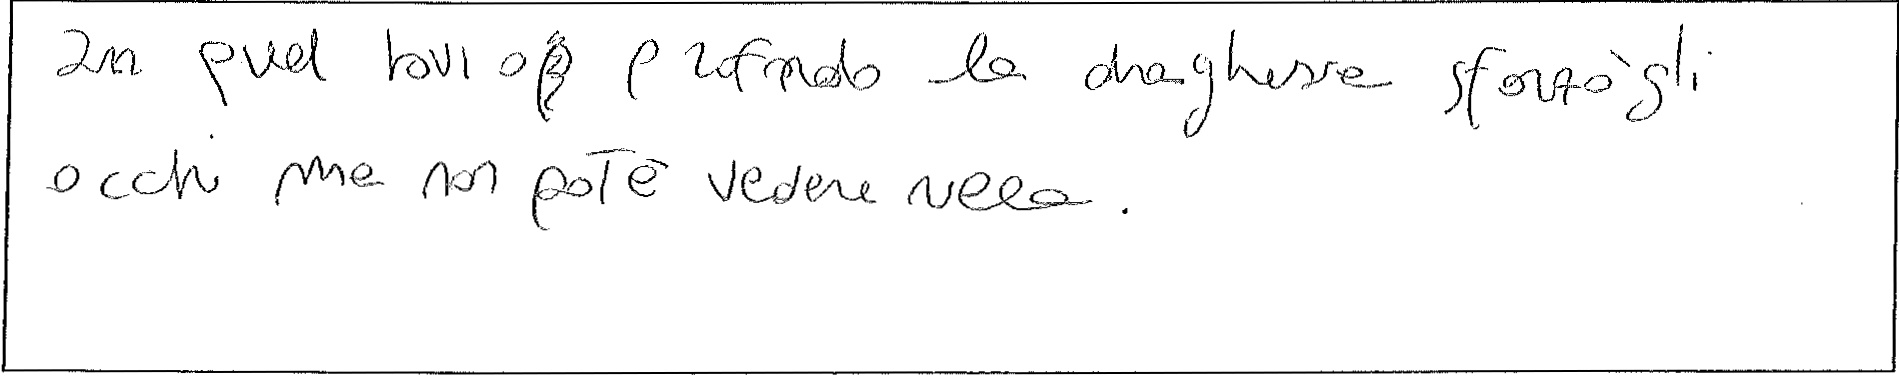 In quel profondo la draghessa sforzò gli
occhi ma non poté vedere nulla.